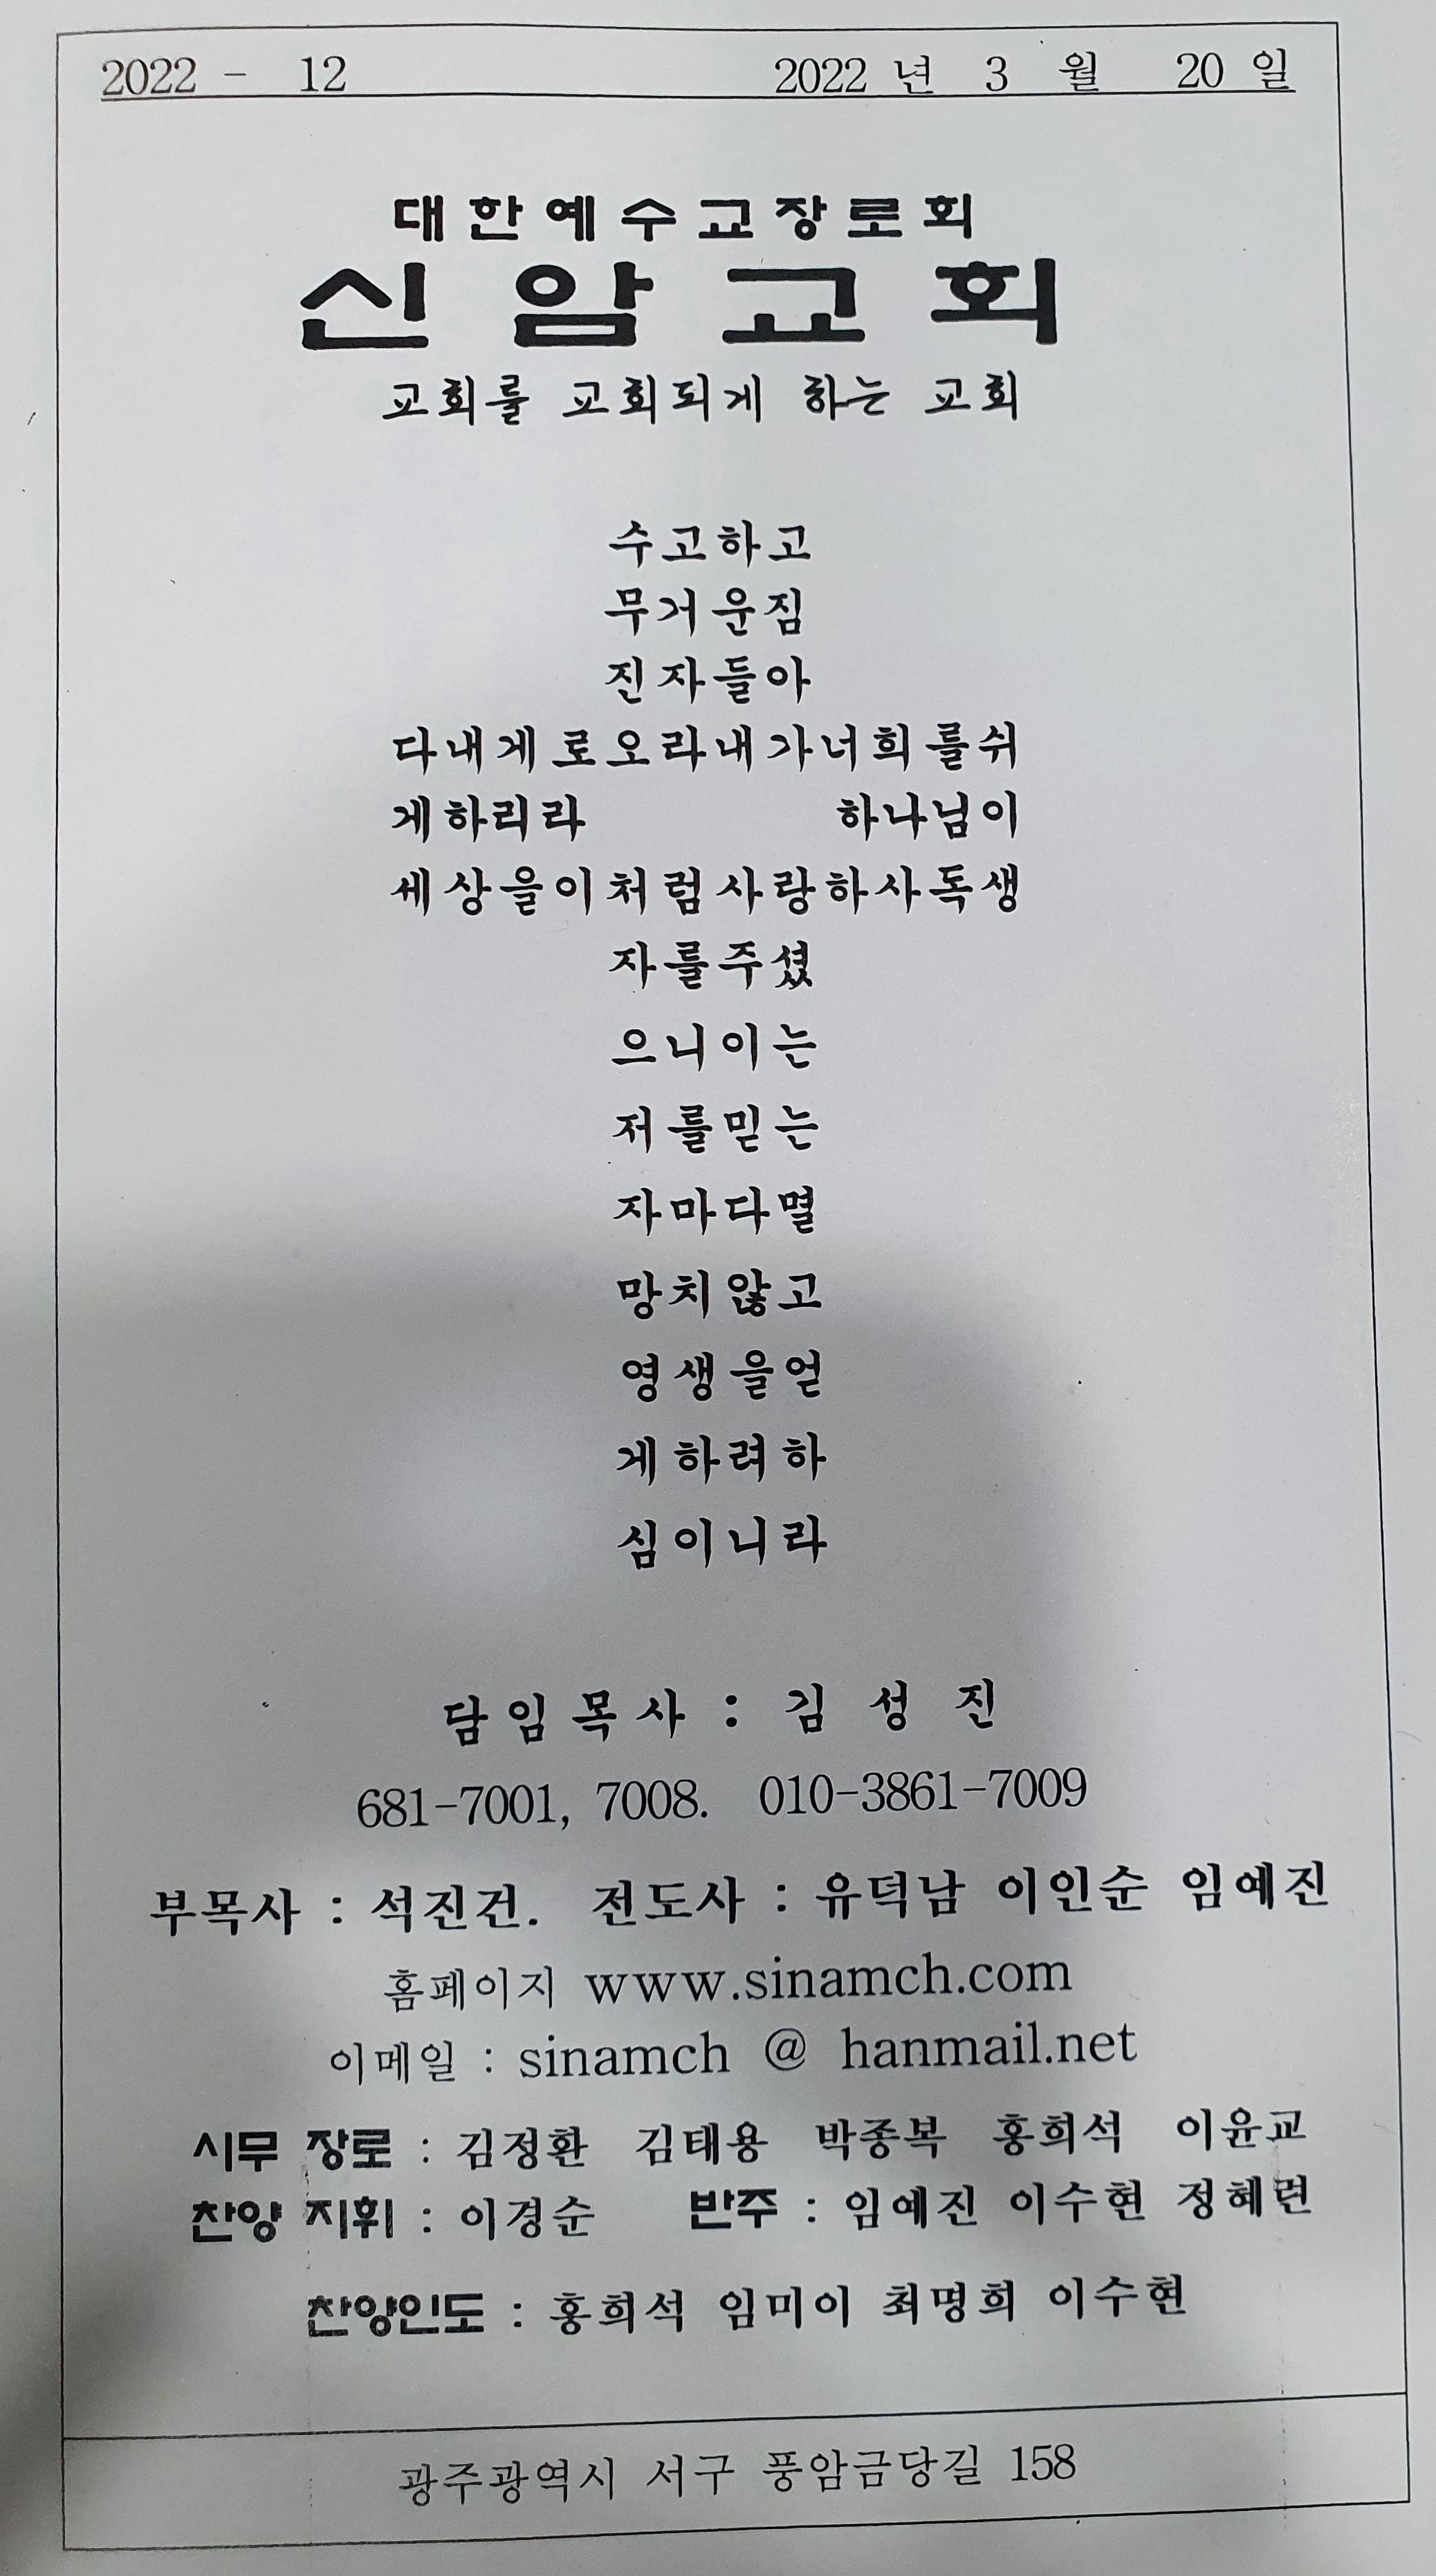 2022 - 12 2022 년 3 월 20 일
대한예수교장로회
신암교회
교회를 교회되게 하는 교회
수고하고
무거운짐
진자들아
다내게로오라내가너희를쉬
게하리라 하나님이
세상을이처럼사랑하사독생
자를주셨
으니이는
저를믿는
자마다멸
망치않고
영생을얻
게하려하
심이니라
담임목사 : 김 성 진
681-7001, 7008. 010-3861-7009
부목사 : 석진건. 전도사 : 유덕남 이인순 임예진
홈페이지 www.sinamch.com
이메일 : sinamch @ hanmail.net
시무 장로 : 김정환 김태용 박종복 홍희석 이윤교
찬양 지휘 : 이경순 반주 : 임예진 이수현 정혜련
찬양인도 : 홍희석 임미이 최명희 이수현
광주광역시 서구 풍암금당길 158